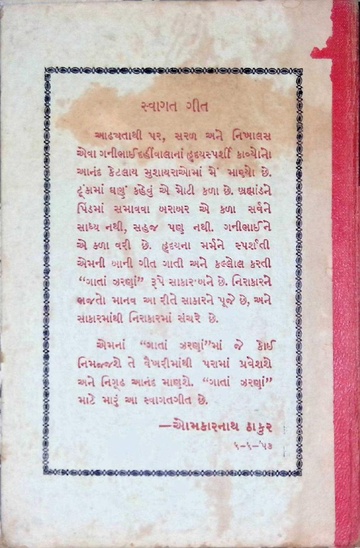 સ્વાગત ગીત
આઢ્યતાથી પર, સરળ અને નિખાલસ
એવા ગનીભાઈ દહીંવાલાનાં હૃદયસ્પર્શી કાવ્યોનો
આનંદ કેટલાય મુશાયરાઓમાં મેં માણ્યો છે.
ટૂંકામાં ઘણું કહેવું એ મોટી કળા છે. બ્રહ્માંડને
પિંડમાં સમાવવા બરાબર એ કળા સર્વને
સાધ્ય નથી, સહજ પણ નથી. ગનીભાઈને
એ કળા વરી છે. હૃદયના મર્મને સ્પર્શતી
એમની બાની ગીત ગાતી અને કલ્લોલ કરતી
“ગાતાં ઝરણાં” રૂપે સાકાર બને છે. નિરાકારને
ભજતો માનવ આ રીતે સાકારને પૂજે છે, અને
સાકારમાંથી નિરાકારમાં સંચરે છે.
એમનાં “ગાતાં ઝરણાં”માં જે કોઈ
નિમજ્જશે તે વૈખરીમાંથી પરામાં પ્રવેશશે
અને નિગૂઢ આનંદ માણશે. “ગાતાં ઝરણાં”
માટે મારું આ સ્વાગતગીત છે.
—ઓમકારનાથ ઠાકુર
૬–૬–’૫૩